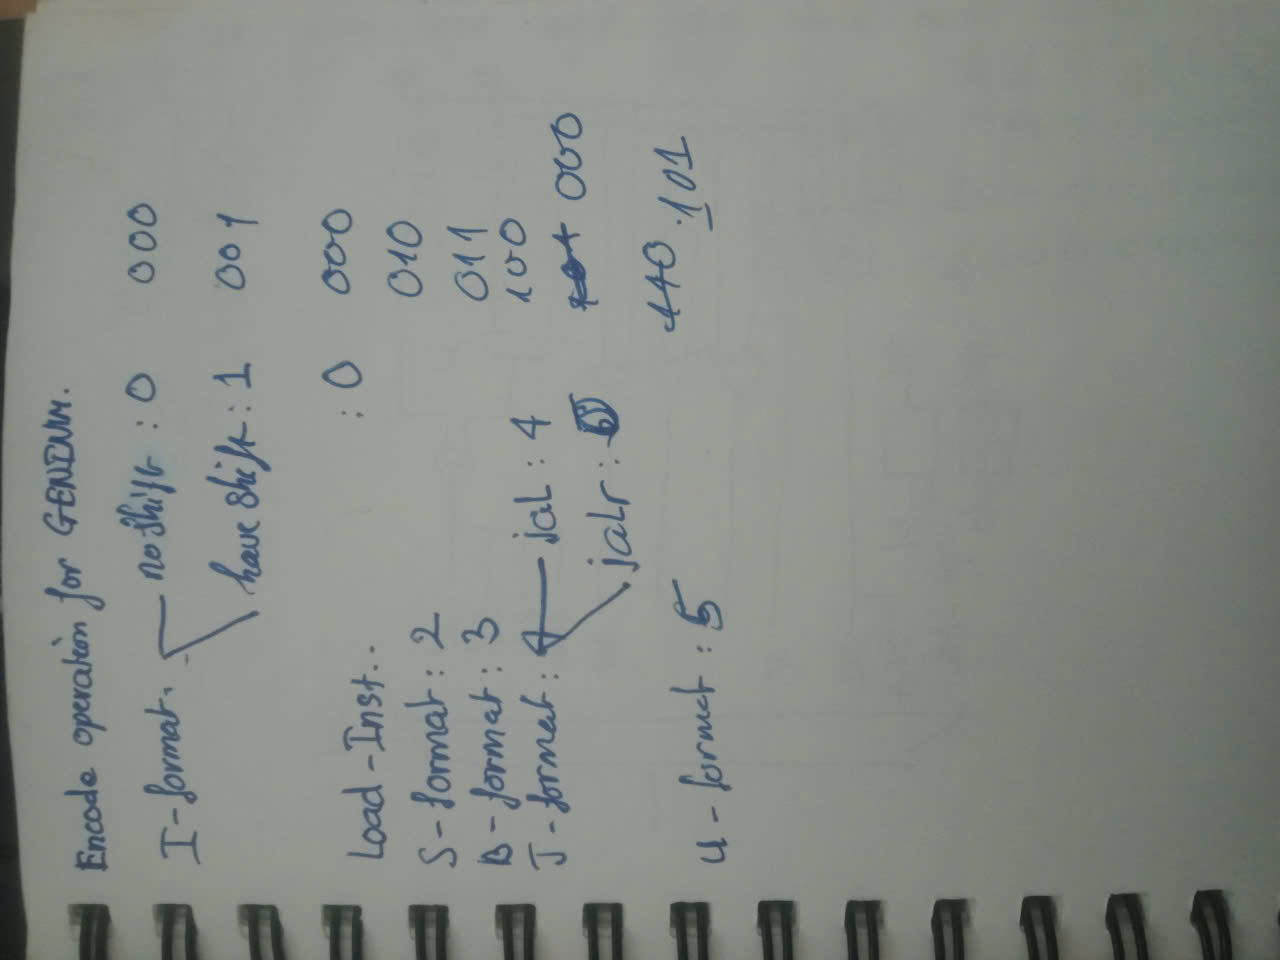 Encode operation for GENIMM.
I-format. no shift : 0 000
have shift : 1 001
Load-Inst.. : 0 000
S-format : 2 010
B-format : 3 011
J-format : jal : 4 100
jalr : 000
U-format : 5 110 101